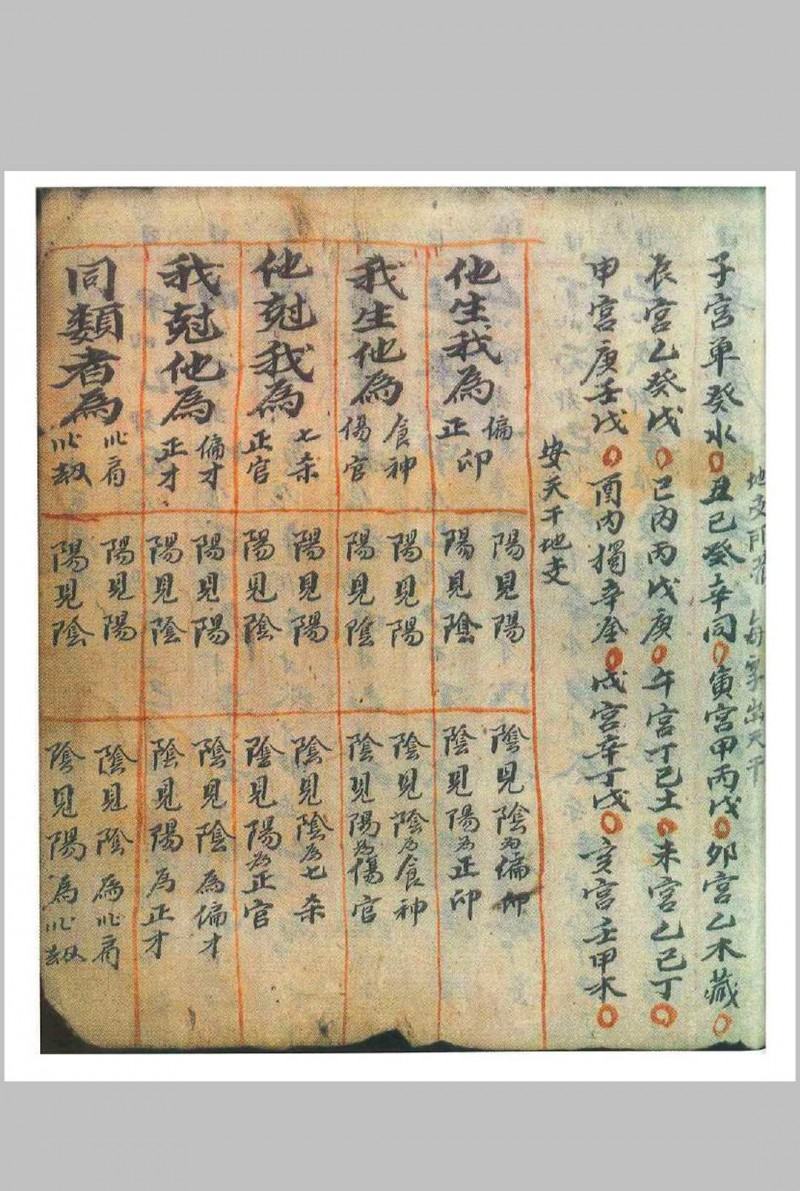 地支所藏 每字出天干
子宮单癸水○丑己癸辛同○寅宮甲丙戊○卯宮乙木藏○
辰宮乙癸戊○巳内丙戊庚○午宮丁己土○未宮乙己丁○
申宮庚壬戊○酉内獨辛金○戌宮辛丁戊○亥宮壬甲木○
安天干地支
他生我為
偏印
正印
陽見陽
陽見陰
陰見陰為偏印
陰見陽為正印
我生他為
食神
傷官
陽見陽
陽見陰
陰見陰為食神
陰見陽為傷官
他尅我為
七杀
正官
陽見陽
陽見陰
陰見陰為七杀
陰見陽為正官
我尅他為
偏才
正才
陽見陽
陽見陰
陰見陰為偏才
陰見陽為正才
同類者為
比肩
比劫
陽見陽
陽見陰
陰見陰為比肩
陰見陽為比劫